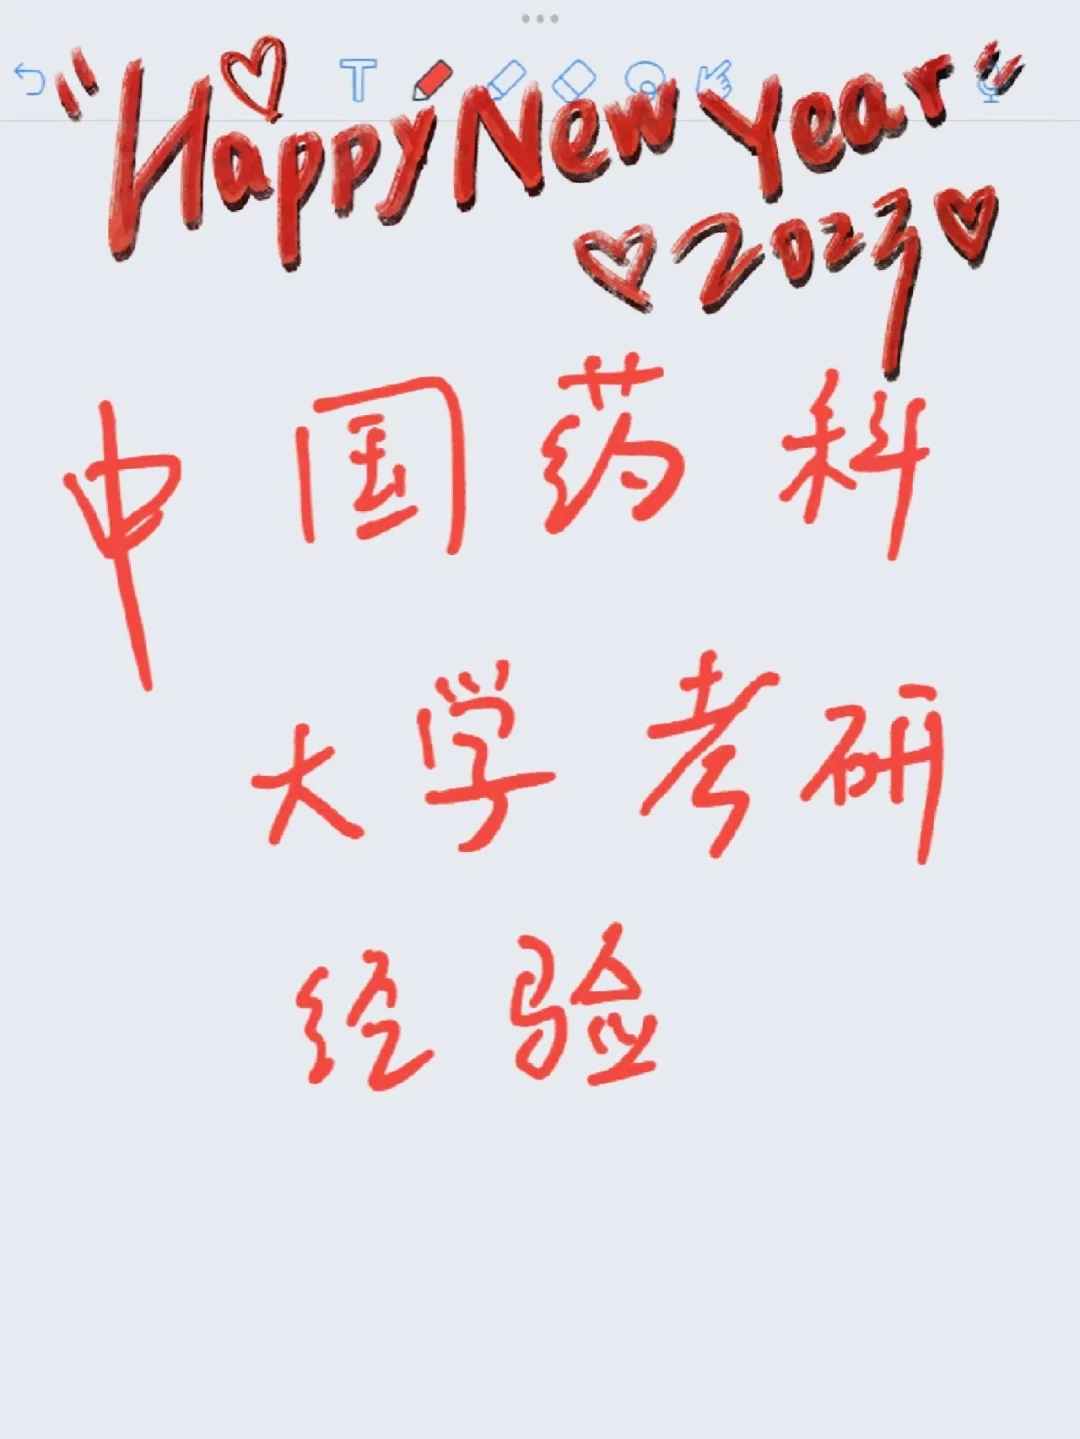 "Happy New Year"
2023
中国药科
大学考研
经验